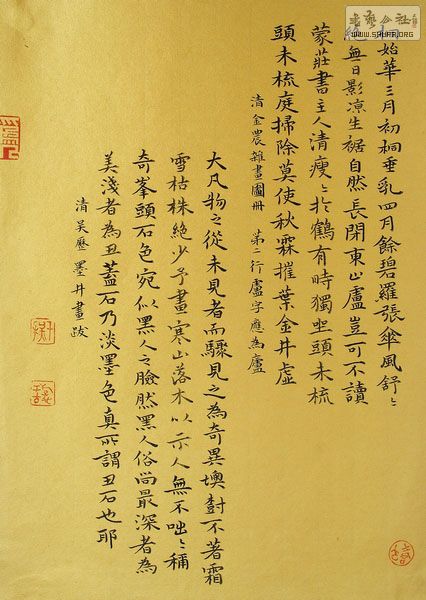 書藝公社
WWW.SHUFA.ORG
始華三月初桐垂乳四月餘碧羅張傘風舒〻
絕無日影凉生裾自然長閉東山盧豈可不讀
蒙莊書主人清瘦〻於鶴有時獨坐頭未梳
頭未梳庭掃除莫使秋霖摧葉金井虛
清金農雜畫圖册 第二行盧字應為廬
大凡物之從未見者而驟見之為奇異墺不著霜
雪枯株絶少予畫寒山落木以示人無不咄〻稱
奇峯頭石色宛似黑人之臉然黑人俗尚最深者為
美淺者為丑蓋石乃淡墨色真所謂丑石也耶
清吳歷墨井畫跋